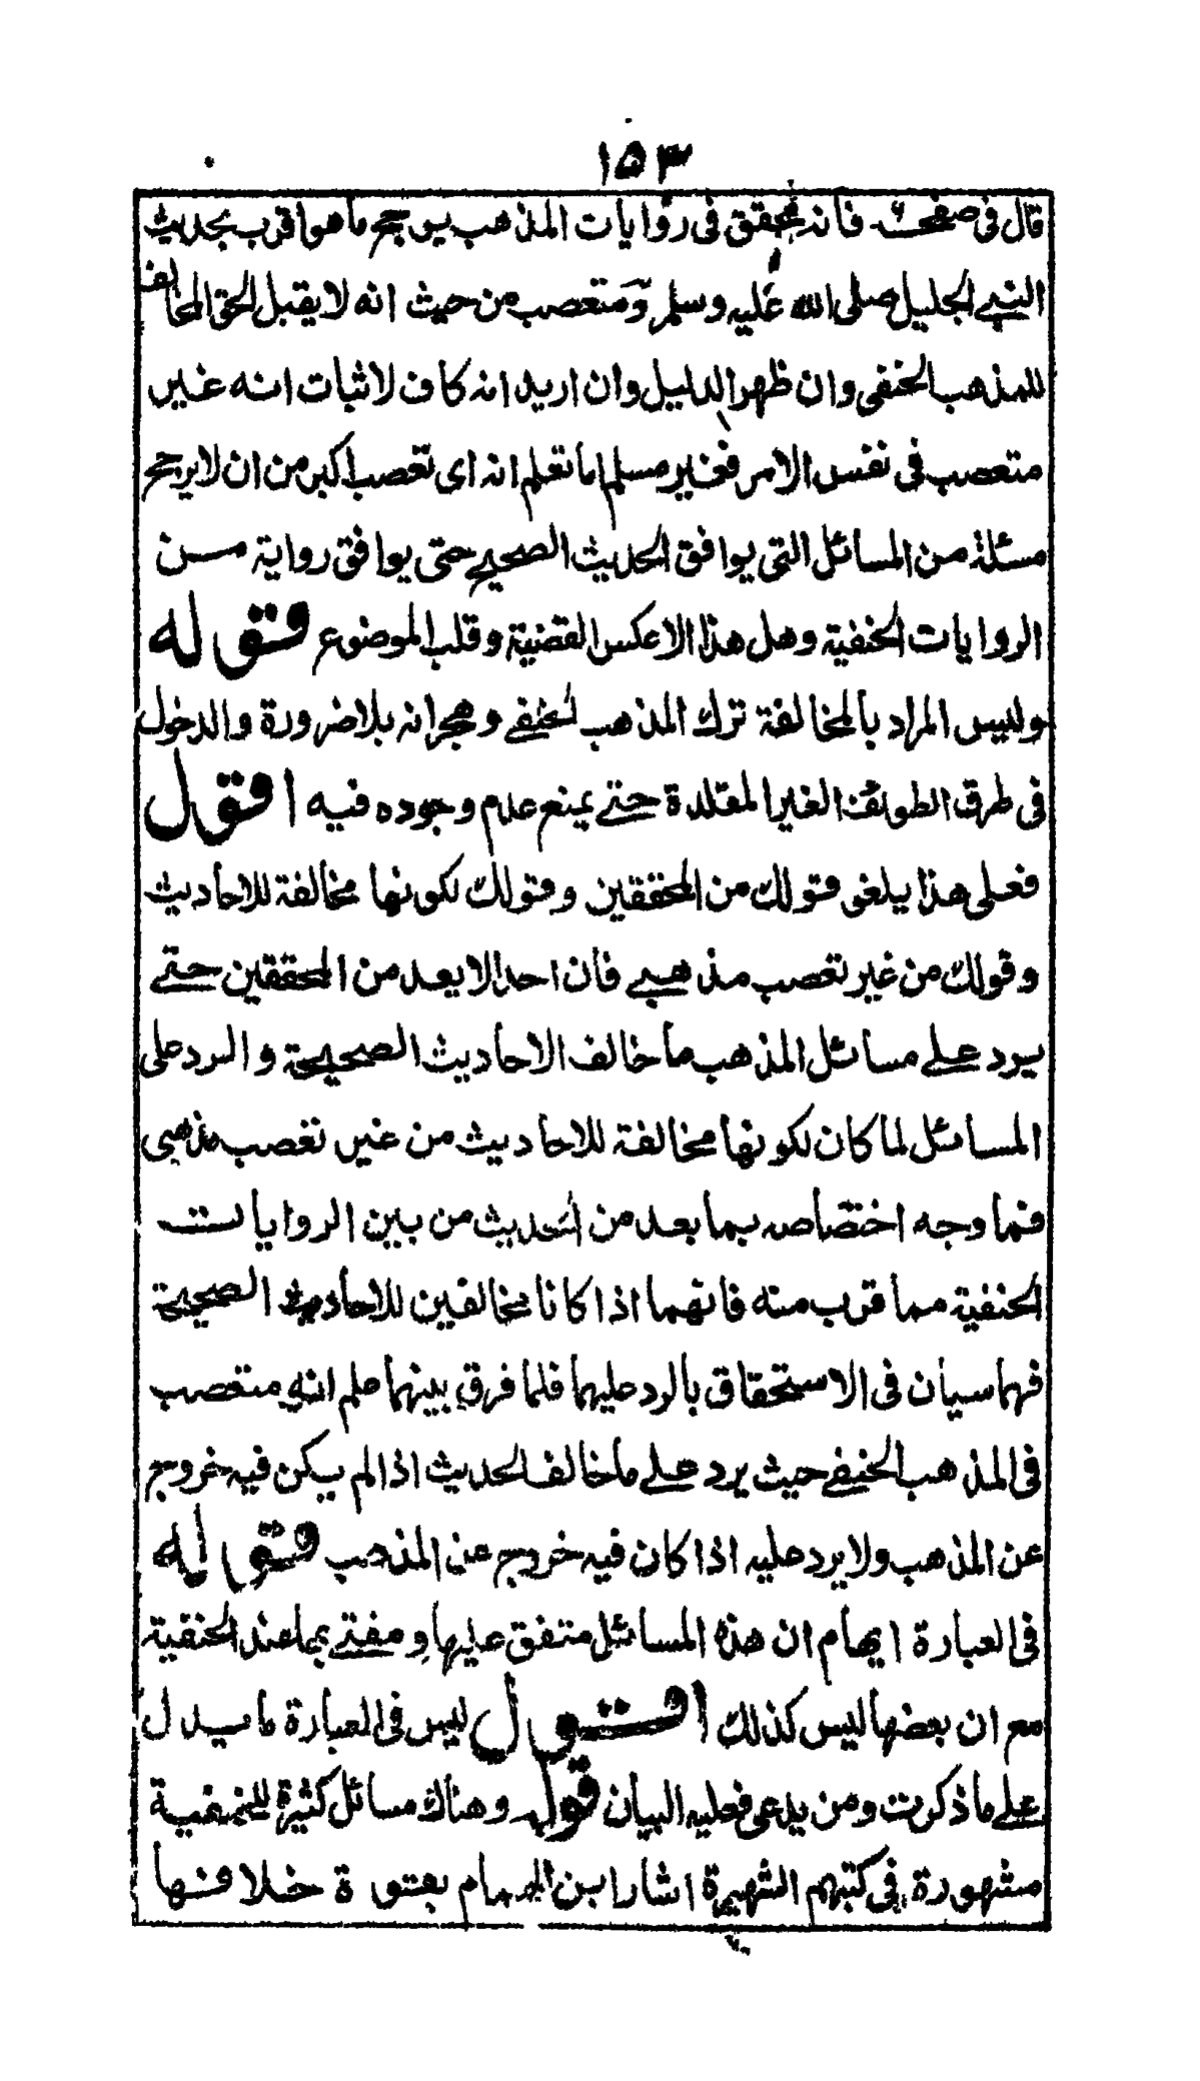 ١٥٣
قال فى صفحة فانه محقق فى روايات المذهب يرجح ما هو اقرب بحديث
النبي الجليل صلى الله عليه وسلم ومتعصب من حيث انه لا يقبل الحق المخالف
للمذهب الحنفى وان ظهر الدليل وان اريد انه كاف لاثبات انه غير
متعصب فى نفس الامر فغير مسلم اما تعلم انه اى تعصب اكبر من ان لا يرجح
مسئلة من المسائل التى يوافق الحديث الصحيح حتى يوافق رواية من
الروايات الحنفية وهل هذا الا عكس القضية وقلب الموضوع قوله
وليس المراد بالمخالفة ترك المذهب الحنفي وهجرانه بلا ضرورة والدخول
فى طرق الطوائف الغير المقلدة حتے يمنع عدم وجوده فيه اقول
فعلى هذا يلغى قولك من المحققين وقولك لكونها مخالفة للاحاديث
وقولك من غير تعصب مذهبے فان احدا لا يعد من المحققين حتے
يرد علے مسائل المذهب ما خالف الاحاديث الصحيحة والرد على
المسائل لما كان لكونها مخالفة للاحاديث من غير تعصب مذهبى
فما وجه اختصاصه بما بعد من الحديث من بين الروايات
الحنفية مما قرب منه فانهما اذا كانا مخالفين للاحاديث الصحيحة
فهما سيان فى الاستحقاق بالرد عليهما فلما فرق بينهما علم انه متعصب
فى المذهب الحنفے حيث يرد علے ما خالف الحديث اذا لم يكن فيه خروج
عن المذهب ولا يرد عليه اذا كان فيه خروج عن المذهب قوله
فى العبارة ايهام ان هذه المسائل متفق عليها ومفتے بها عند الحنفية
مع ان بعضها ليس كذلك اقول ليس فى العبارة ما يدل
علے ما ذكرت ومن يدعى فعليه البيان قوله وهناك مسائل كثيرة للحنفية
مشهورة فى كتبهم الشهيرة اشار ابن الهمام بقوة خلافها